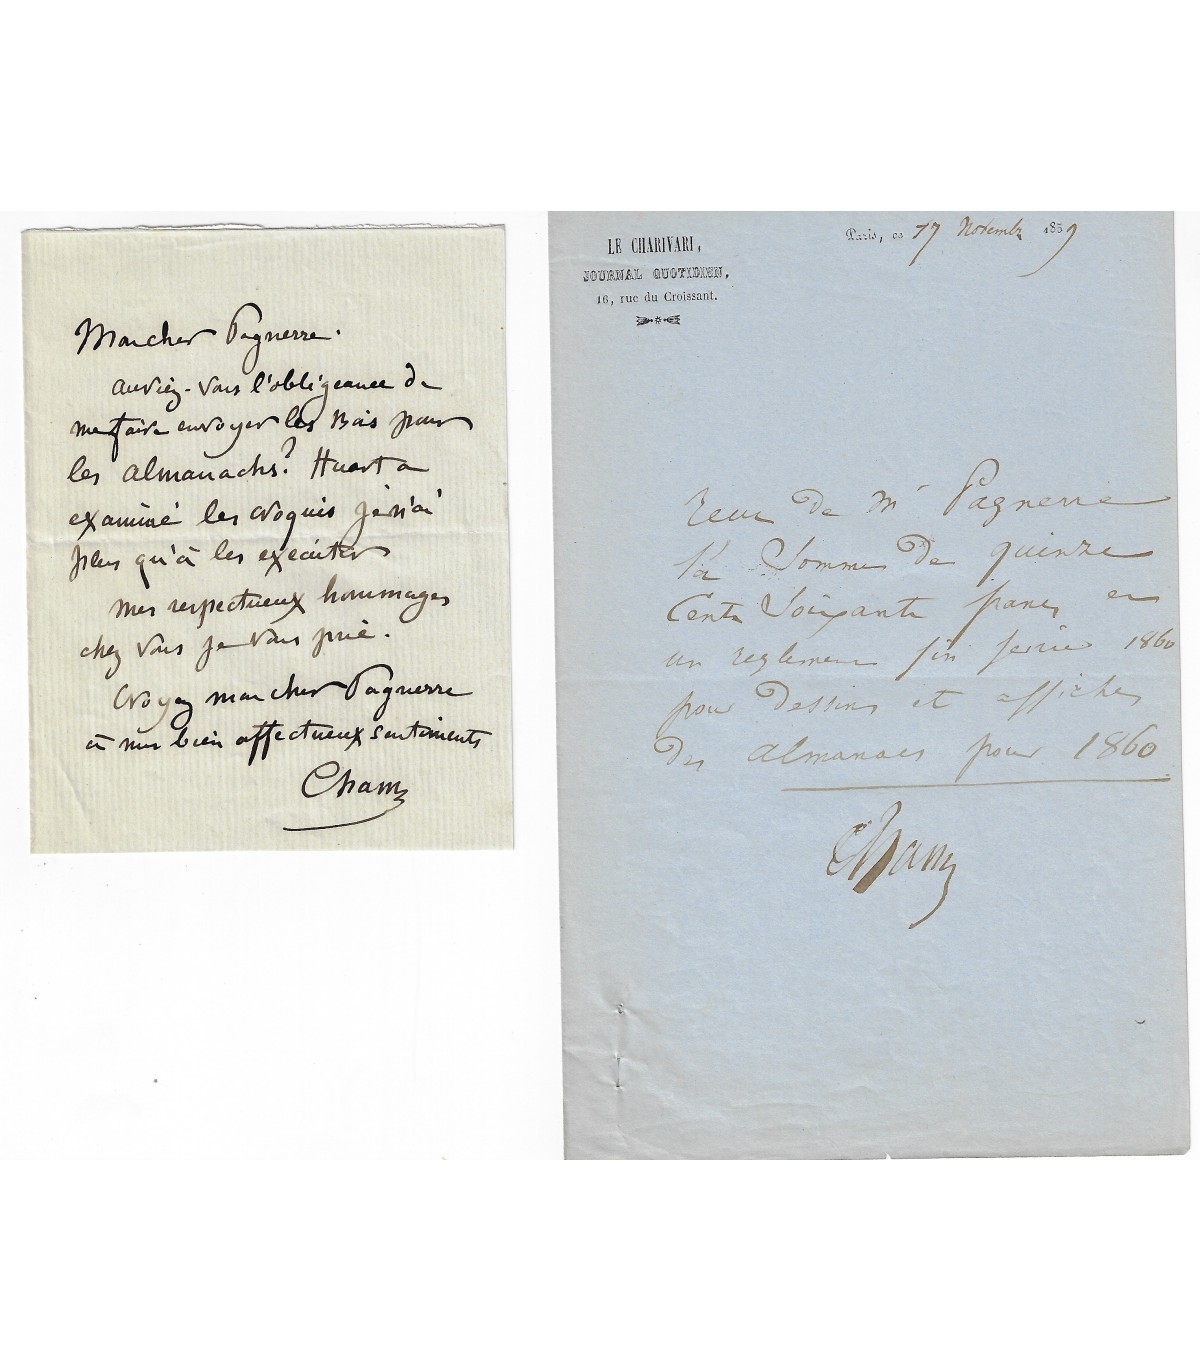 Mon cher Pagnerre.
auriez-vous l'obligeance de
me faire envoyer les Bois pour
les almanachs? Huart a
examiné les croquis je n'ai
plus qu'à les exécuter
mes respectueux hommages
chez vous je vous prie.
Croyez mon cher Pagnerre
à mes bien affectueux sentiments
Cham
LE CHARIVARI,
JOURNAL QUOTIDIEN,
16, rue du Croissant.
Paris, ce 17 Novembre 1859
recu de Mr Pagnerre
la Somme de quinze
Cents Soixante francs en
un reglement fin fevrier 1860
pour dessins et affiches
des almanacs pour 1860
Cham